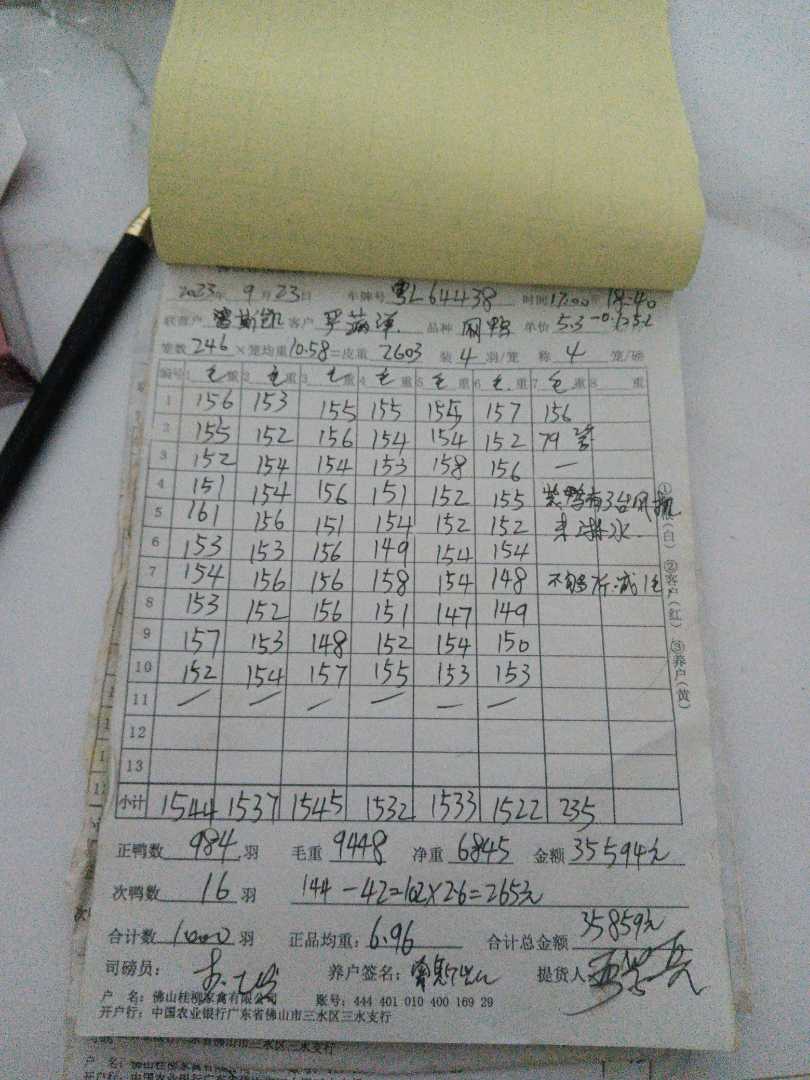 2023年 9月23日 车牌号 粤L64438 时间17:00 18:40
客户 品种 单价 5.3-0.1=5.2
笼数 246 ×笼均重10.58=皮重 2603 装 4 羽/笼 称 4 笼/磅
编号 1 毛重 2 毛重 3 毛重 4 毛重 5 毛重 6 毛重 7 毛重 8 重
1 156 153 155 155 155 157 156
2 155 152 156 154 154 152 79
3 152 154 154 153 158 156 —
4 151 154 156 151 152 155 装鸭有3台风机
5 161 156 151 154 152 152
6 153 153 156 149 154 154
7 154 156 156 158 154 148 不够7斤.减1毛
8 153 152 156 151 147 149
9 157 153 148 152 154 150
10 152 154 157 155 153 153
11 — — — — — —
12
13
小计 1544 1537 1545 1532 1533 1522 235
①(白) ②客户(红) ③养户(黄)
正鸭数 984 羽 毛重 9448 净重 6845 金额 35594元
次鸭数 16 羽 144-42=102×2.6=265元
合计数 1000 羽 正品均重: 6.96 合计总金额 35859元
司磅员: 养户签名: 提货人
户 名: 佛山桂柳家禽有限公司 账号: 444 401 010 400 169 29
开户行: 中国农业银行广东省佛山市三水区三水支行
佛山市三水区三水支行
户 名: 佛山桂柳家禽
开户行: 中国农业银行